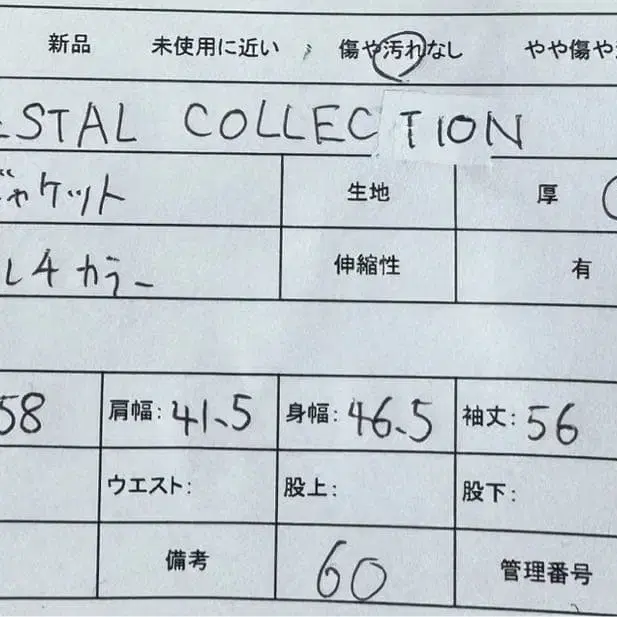 新品 未使用に近い 傷や汚れなし やや傷や
ESTAL COLLECTION
ジャケット 生地 厚
ルチカラー 伸縮性 有
58 肩幅: 41.5 身幅: 46.5 袖丈: 56
ウエスト: 股上: 股下:
備考 60 管理番号